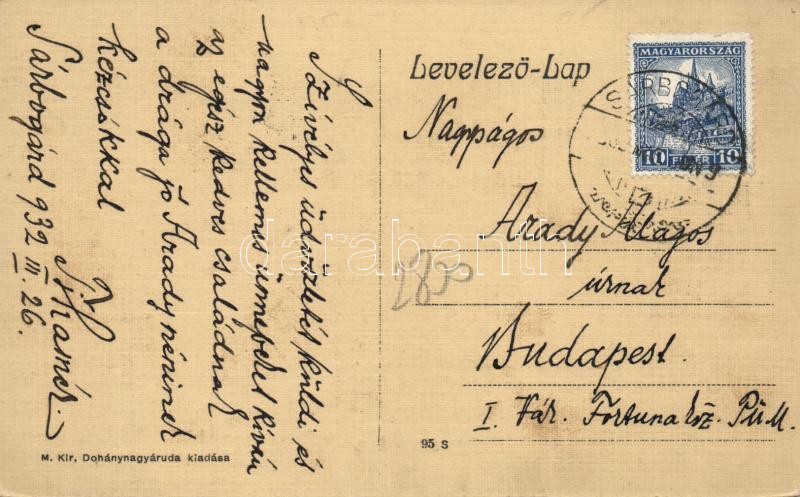 Szívélyes üdvözletét küldi és
nagyon kellemes ünnepeket kíván
az egész kedves családnak
a drága jó Arady néninek
kézcsókkal
Sárbogárd 932 III. 26.
M. Kir. Dohánynagyáruda kiadása
Levelező-Lap
MAGYARORSZÁG
10 FILLÉR 10
SÁRBOGÁRD
Nagyságos
Arady
úrnak
Budapest.
I. Vár. Fortuna köz. P.ü.M.
2800
95 S
darabanth